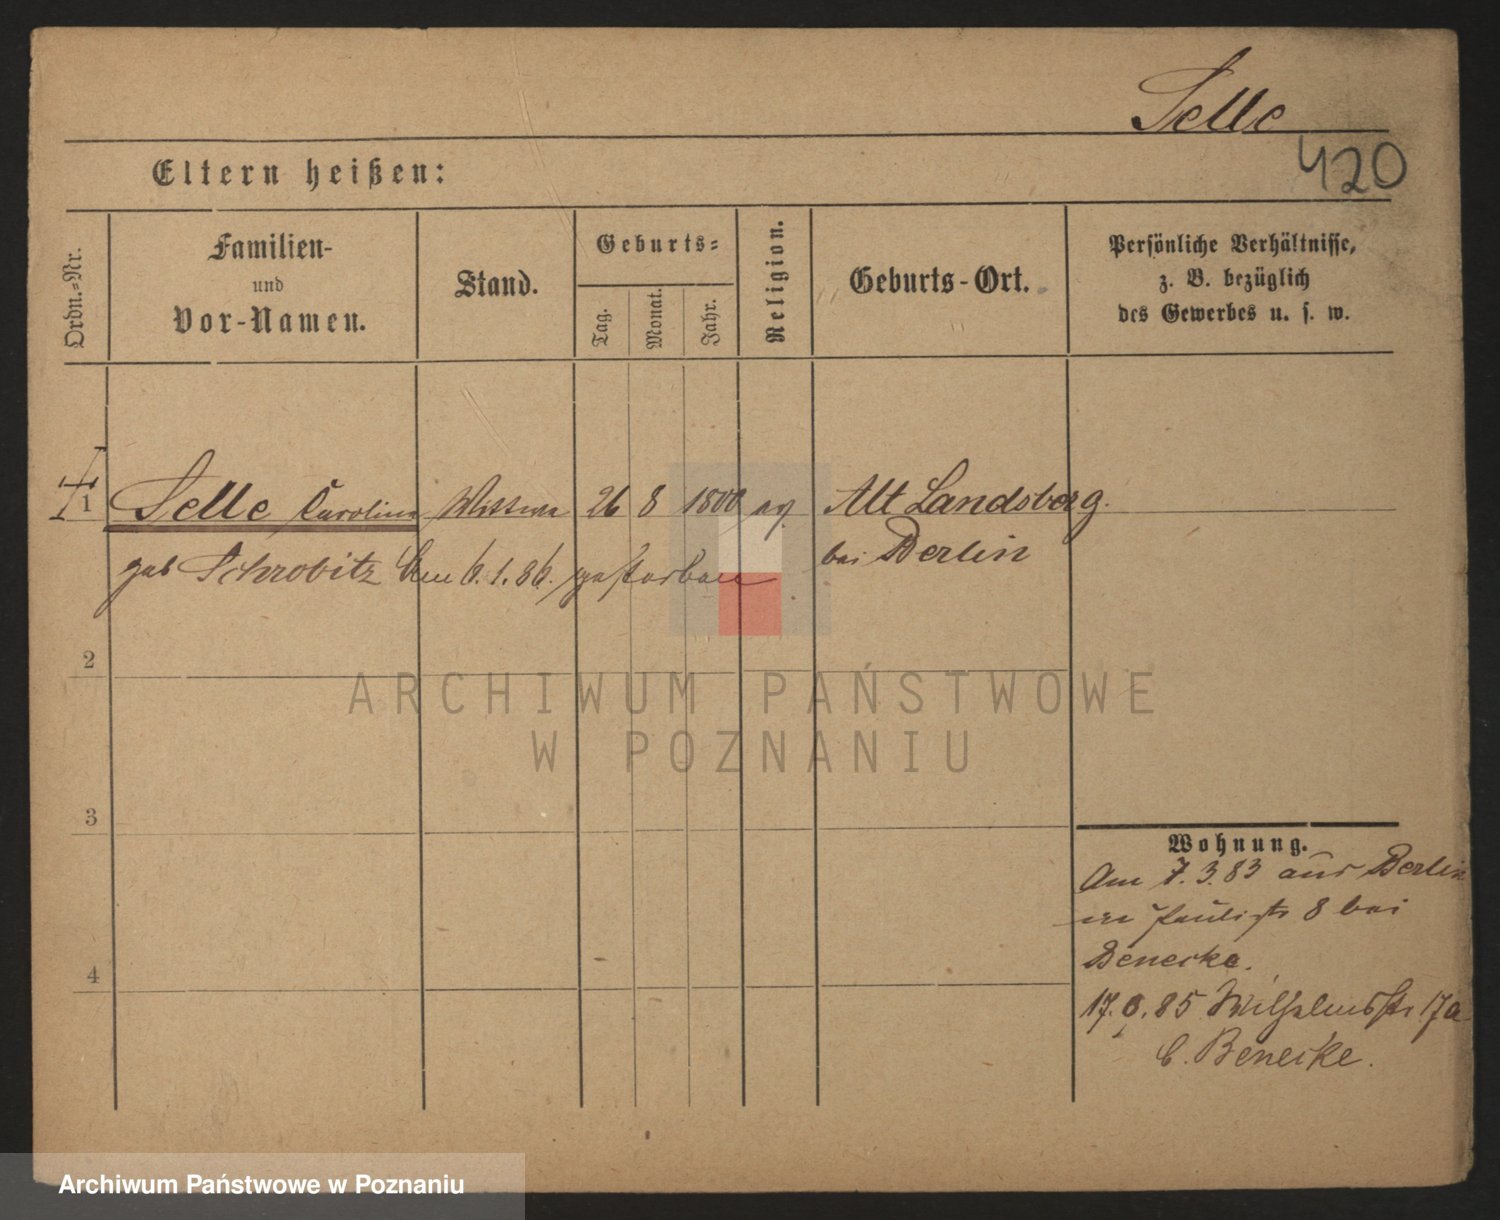 Selle
420
Eltern heißen:
Ordn.-Nr.
Familien-
und
Vor-Namen.
Stand.
Geburts-
Tag.
Monat.
Jahr.
Religion.
Geburts-Ort.
Persönliche Verhältnisse,
z. B. bezüglich
des Gewerbes u. s. w.
1 Selle Caroline Wittwe 26 8 1800 ev Alt Landsberg.
geb Schrobitz Am 6.1.86. gestorben bei Berlin
2
ARCHIWUM PAŃSTWOWE
W POZNANIU
3
4
Wohnung.
Am 7.3.83 aus Berlin
Paulistr 8 bei
Benecke.
17. .85 Wilhelmsstr 17a
b. Benecke.
Archiwum Państwowe w Poznaniu